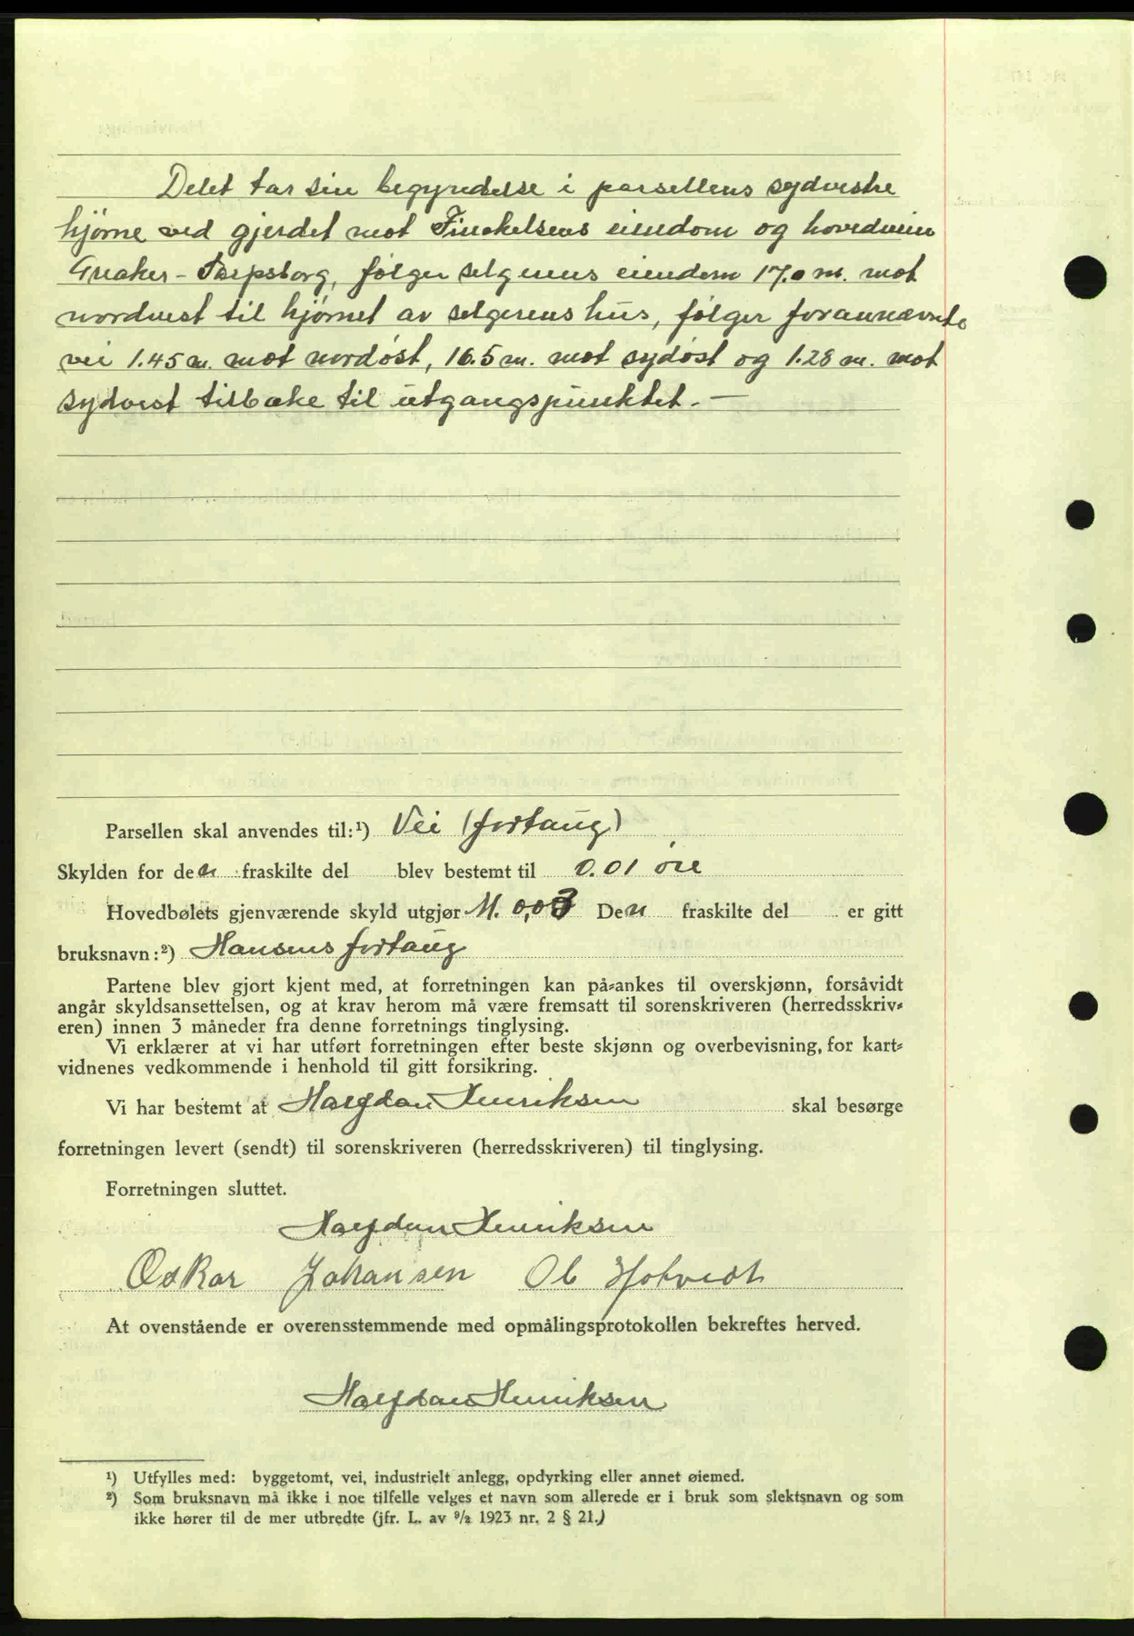 Delet tar sin begyndelse i parsellens sydvestre
hjørne ved gjerdet mot Finckelsens eiendom og hovedveien
Greaker - Sarpsborg, følger selgerens eiendom 17.0 m. mot
nordvest til hjørnet av selgerens hus, følger forannævnte
vei 1.45 m. mot nordøst, 16.5 m. mot sydøst og 1.28 m. mot
sydvest tilbake til utgangspunktet. —
Parsellen skal anvendes til:¹) Vei (fortaug)
Skylden for den fraskilte del blev bestemt til 0.01 øre
Hovedbølets gjenværende skyld utgjør M. 0,03 Den fraskilte del er gitt
bruksnavn:²) Hansens fortaug
Partene blev gjort kjent med, at forretningen kan på-ankes til overskjønn, forsåvidt
angår skyldsansettelsen, og at krav herom må være fremsatt til sorenskriveren (herredsskriv-
eren) innen 3 måneder fra denne forretnings tinglysing.
Vi erklærer at vi har utført forretningen efter beste skjønn og overbevisning, for kart-
vidnenes vedkommende i henhold til gitt forsikring.
Vi har bestemt at Halfdan Henriksen skal besørge
forretningen levert (sendt) til sorenskriveren (herredsskriveren) til tinglysing.
Forretningen sluttet.
Halfdan Henriksen
Oskar Johansen Ol Hotvedt
At ovenstående er overensstemmende med opmålingsprotokollen bekreftes herved.
Halfdan Henriksen
¹) Utfylles med: byggetomt, vei, industrielt anlegg, opdyrking eller annet øiemed.
²) Som bruksnavn må ikke i noe tilfelle velges et navn som allerede er i bruk som slektsnavn og som
ikke hører til de mer utbredte (jfr. L. av 9/2 1923 nr. 2 § 21.)